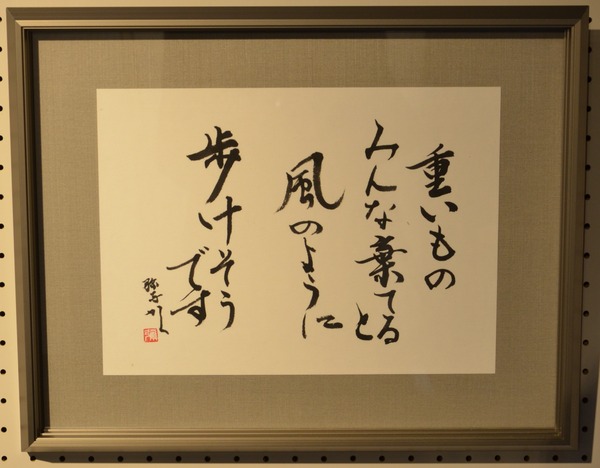 重いもの
みんな棄てると
風のように
歩けそう
です